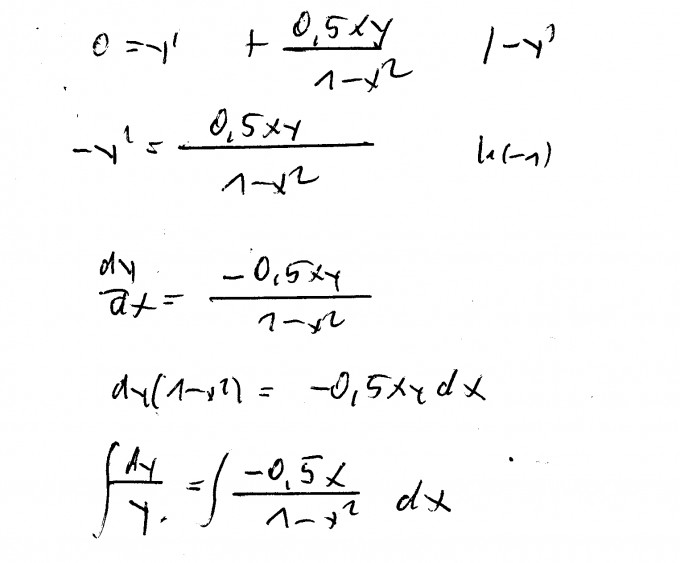 0 = y' + \frac{0,5xy}{1-x^2} | -y'
-y' = \frac{0,5xy}{1-x^2} | \cdot(-1)
\frac{dy}{dx} = \frac{-0,5xy}{1-x^2}
dy(1-x^2) = -0,5xy dx
\int \frac{dy}{y} = \int \frac{-0,5x}{1-x^2} dx